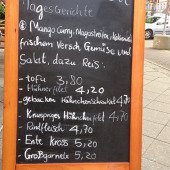 Tagesgerichte
① Mango Curry, Magostroifen,
frischem Versch. Gemüse und
Salat, dazu Reis:
- tofu 3,80
- Hühnerfilet 4,20
- gebacken Hähnchenschnitzel 4,70
- Knuspriges Hühnchenfilet 4,70
- Rindfleisch 4,70
- Ente Kross 5,20
- Großgarnele 5,20